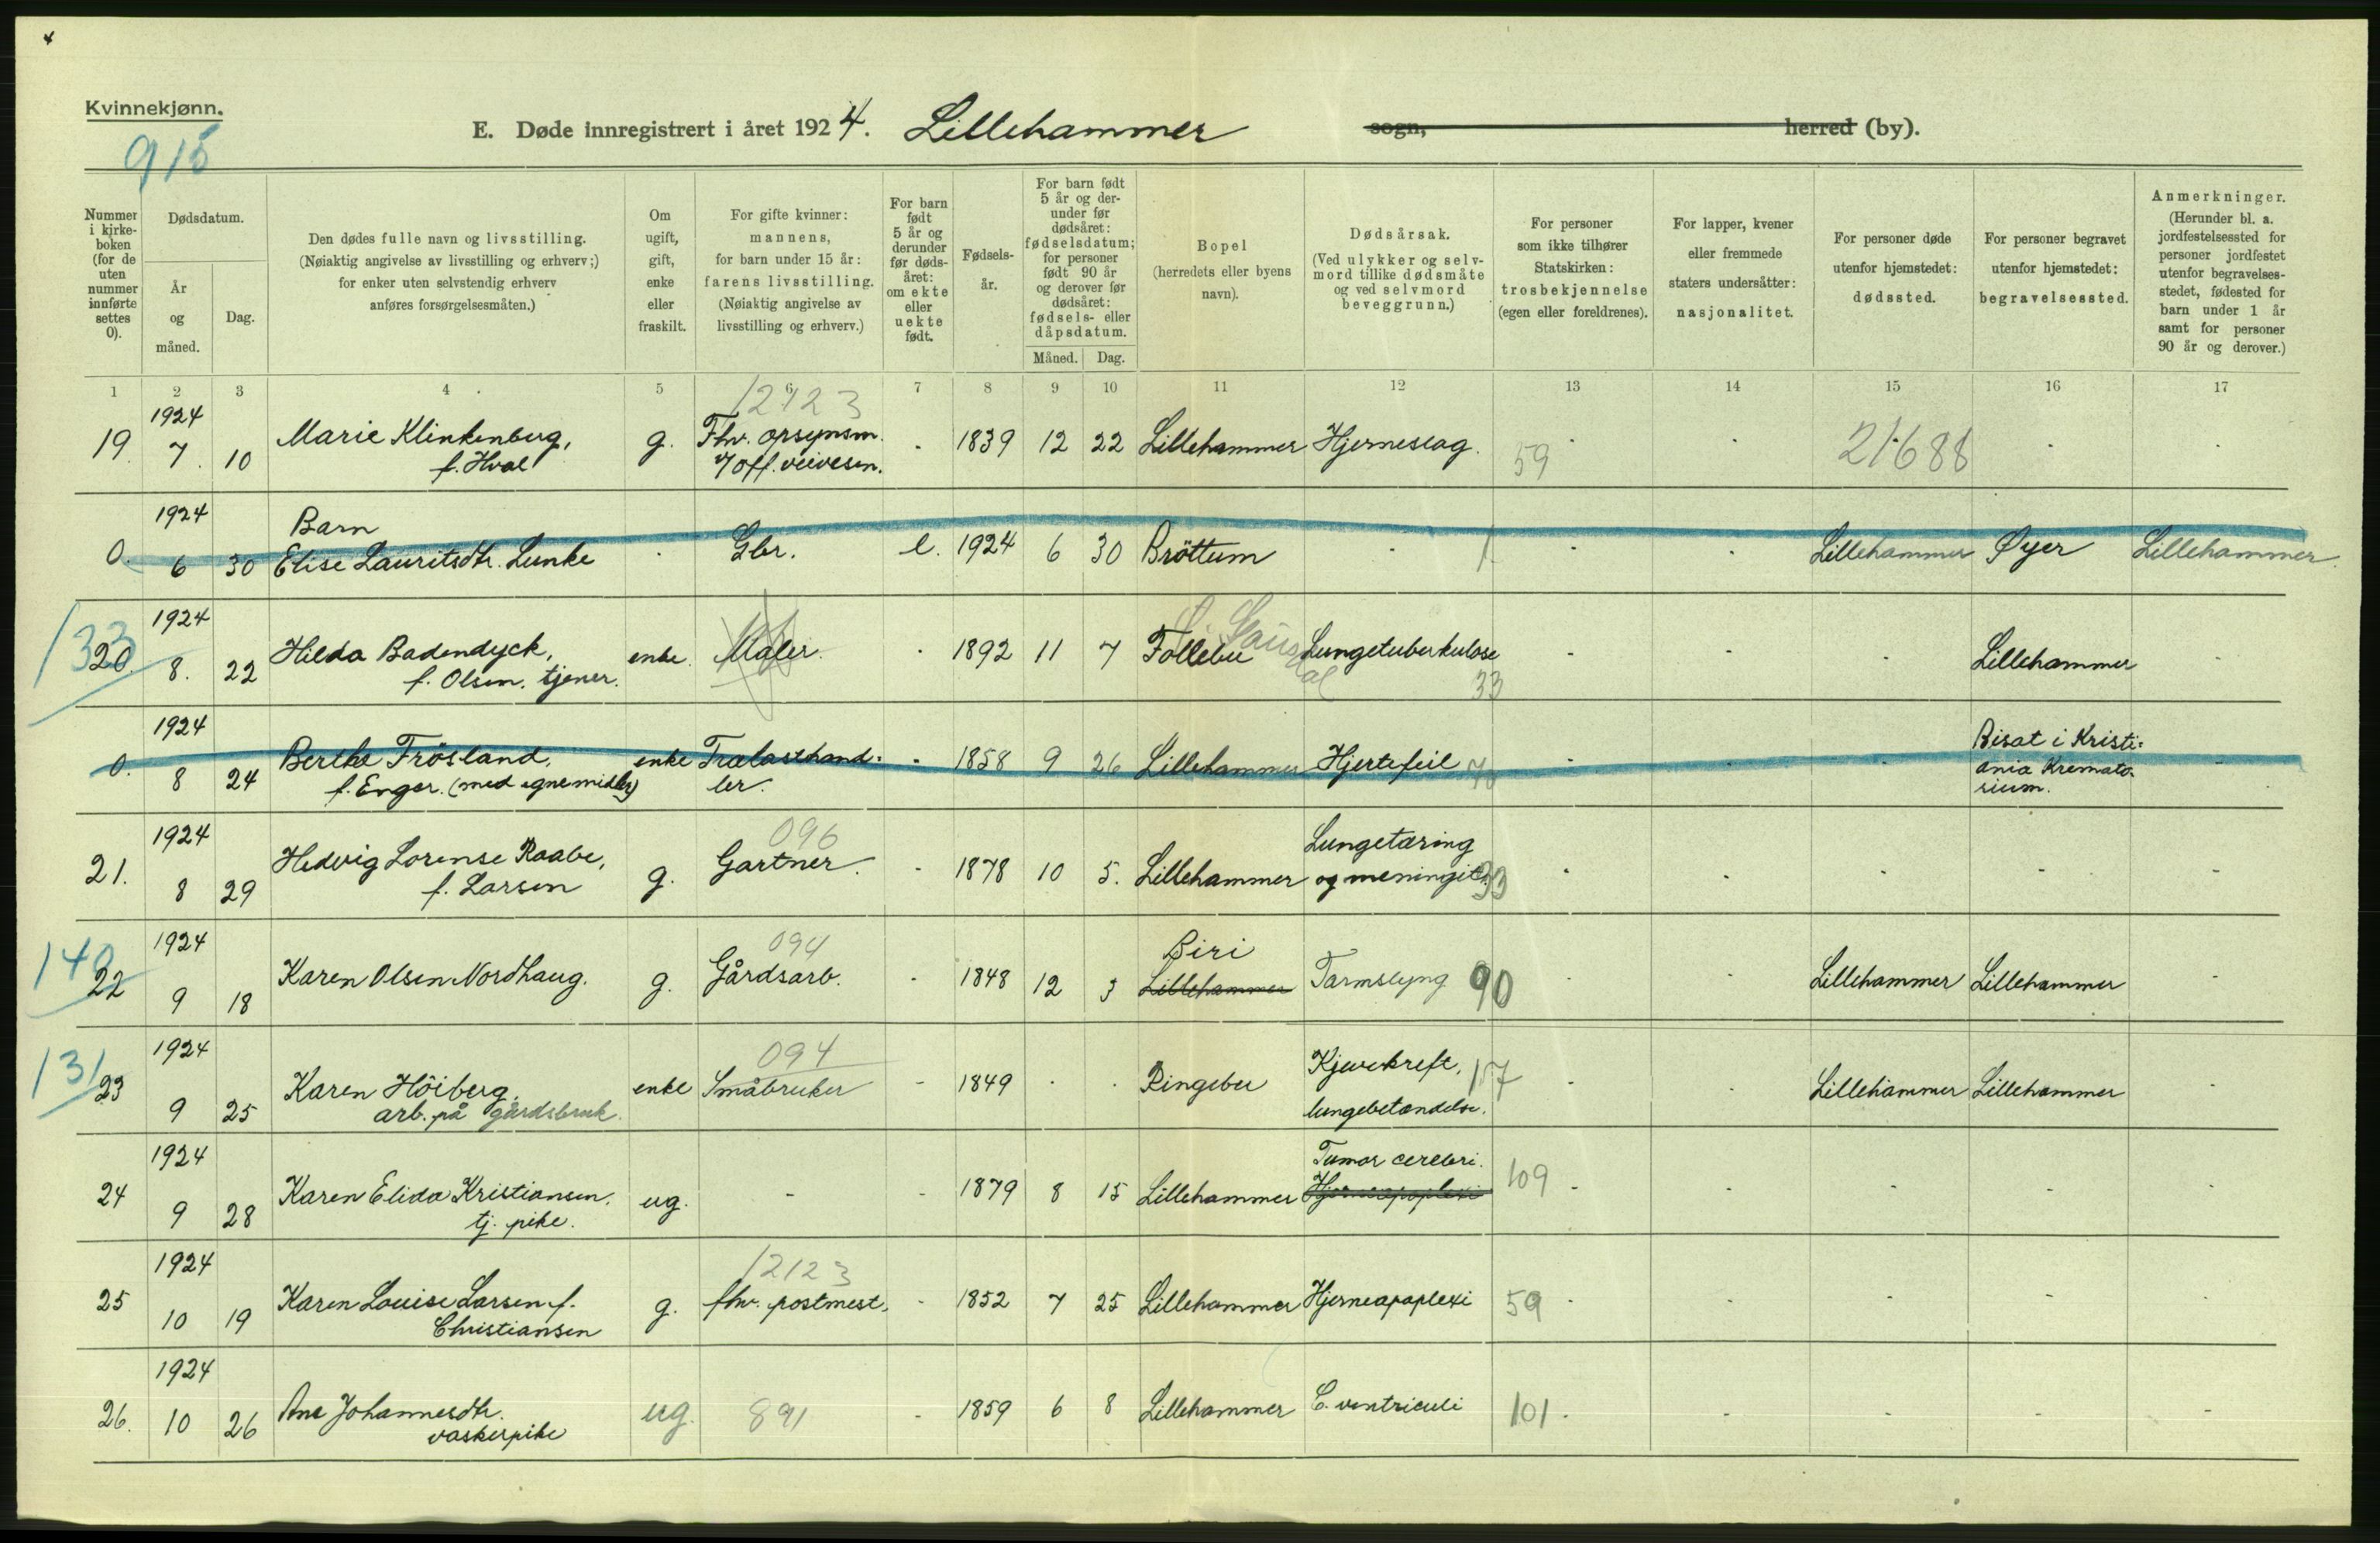 Kvinnekjønn.
915
E. Døde innregistrert i året 1924. Lillehammer sogn, herred (by).
Nummer i kirkeboken (for de uten nummer innførte settes 0).
Dødsdatum.
År og måned.
Dag.
Den dødes fulle navn og livsstilling.
(Nøiaktig angivelse av livsstilling og erhverv;)
for enker uten selvstendig erhverv
anføres forsørgelsesmåten.)
Om ugift, gift, enke eller fraskilt.
For gifte kvinner: mannens, for barn under 15 år: farens livsstilling. (Nøiaktig angivelse av livsstilling og erhverv.)
For barn født 5 år og derunder før dødsåret: om ekte eller uekte født.
Fødselsår.
For barn født 5 år og derunder før dødsåret: fødselsdatum; for personer født 90 år og derover før dødsåret: fødsels- eller dåpsdatum.
Måned. Dag.
Bopel (herredets eller byens navn).
Dødsårsak. (Ved ulykker og selvmord tillike dødsmåte og ved selvmord beveggrunn.)
For personer som ikke tilhører Statskirken: trosbekjennelse (egen eller foreldrenes).
For lapper, kvener eller fremmede staters undersåtter: nasjonalitet.
For personer døde utenfor hjemstedet: dødssted.
For personer begravet utenfor hjemstedet: begravelsessted.
Anmerkninger. (Herunder bl. a. jordfestelsessted for personer jordfestet utenfor begravelsesstedet, fødested for barn under 1 år samt for personer 90 år og derover.)
1 2 3 4 5 6 7 8 9 10 11 12 13 14 15 16 17
1924 12123
19. 7. 10 Marie Klinkenberg, g. Fhv. opsynsm. - 1839 12 22 Lillehammer Hjerneslag. 59 21688
f. Hval v/ off. veivesen.
1924 Barn
0. 6 30 Elise Lauritsdtr. Lunke - Gbr. e. 1924 6 30 Brøttum - Lillehammer Øyer Lillehammer.
133 1924
20. 8. 22 Hilda Badendyck, enke. Maler. - 1892 11 7 Follebu Lungetuberkulose 33 Lillehammer
f. Olsen. tjener.
1924
0. 8 24 Bertha Frösland, enke Trælasthandler. - 1858 9 26 Lillehammer Hjertefeil Bisat i Kristiania Krematorium.
f. Enger. (med egne midler)
1924 096 Lungetæring
21. 8 29 Hedvig Lorense Raabe, g. Gartner. - 1878 10 5. Lillehammer og meningit. 33
f. Larsen
140 1924 094 Biri
22 9 18 Karen Olsen Nordhaug. g. Gårdsarb. - 1848 12 3 Lillehammer Tarmslyng 90 Lillehammer Lillehammer
131 1924 094 Kjevekreft,
23 9 25 Karen Höiberg, enke Småbruker - 1849 Ringebu lungebetændelse. Lillehammer Lillehammer
arb. på gårdsbruk.
1924 Tumor cerebri.
24 9 28 Karen Elida Kristiansen. ug. - - 1879 8 15 Lillehammer Hjerneapoplexi 109
tj. pike.
1924 12123
25 10 19 Karen Louise Larsen f. g. fhv. postmest. - 1852 7 25 Lillehammer Hjerneapoplexi 59
Christiansen
1924
26. 10 26 Ane Johannesdtr. ug. 891 - 1859 6 8 Lillehammer C. ventriculi 101
vaskepike